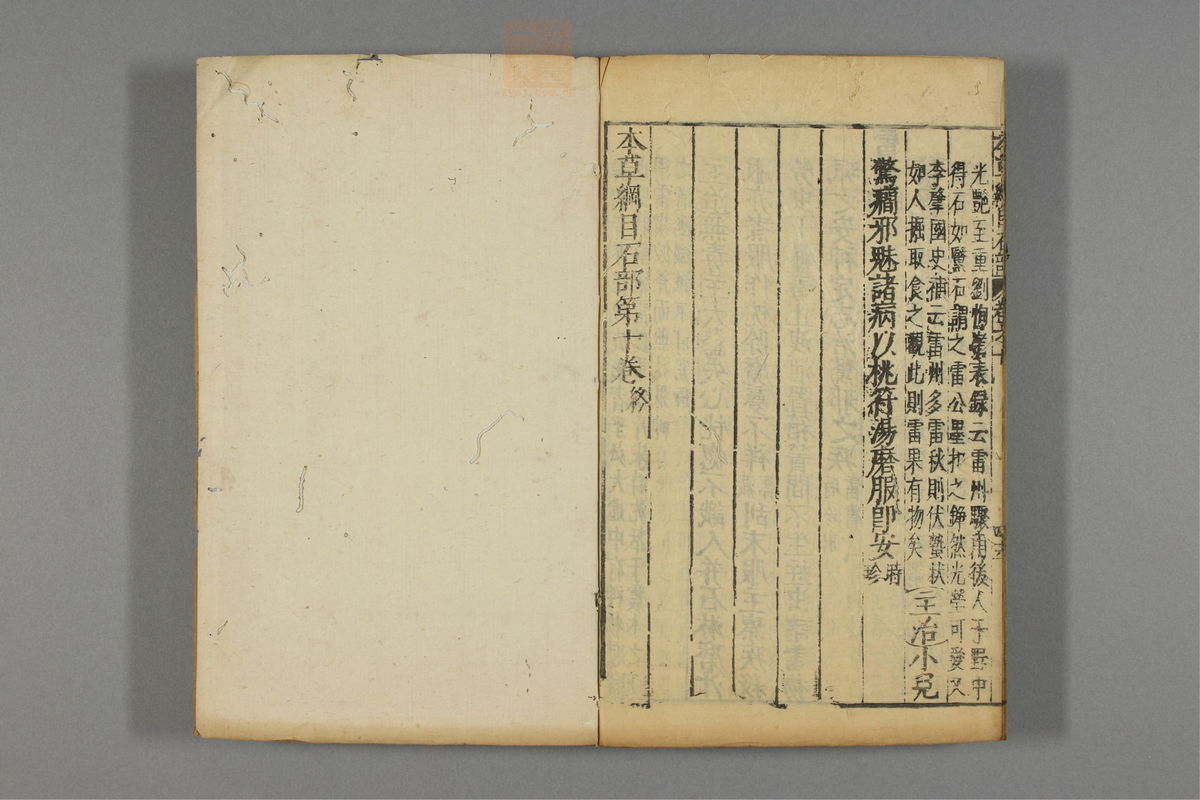 本草綱目石部 卷之十
光艷至重劉恂嶺表錄云雷州驟雨後人于野中
得石如黳石謂之雷公墨扣之錚然光瑩可愛又
李肇國史補云雷州多雷秋則伏蟄狀
如人掘取食之觀此則雷果有物矣
主治小兒
驚癇邪魅諸病以桃符湯磨服卽安時珍
本草綱目石部第十卷終